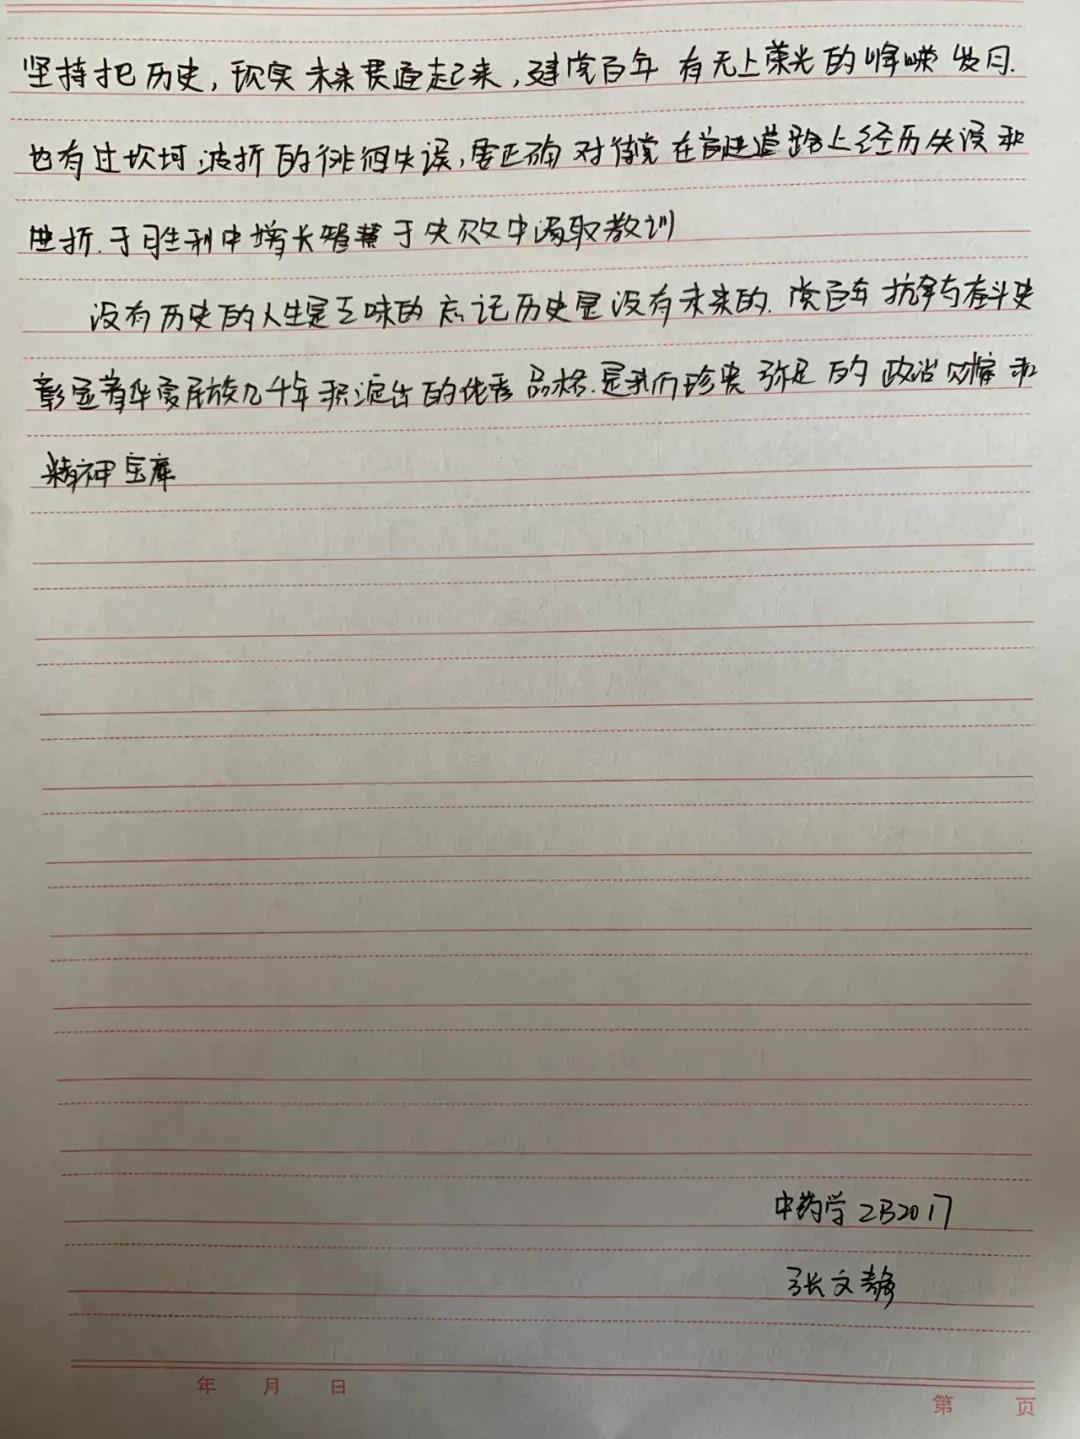 坚持把历史,现实未来贯通起来,建党百年 有无上荣光的峥嵘岁月.
也有过坎坷波折的徘徊失误,要正确对待党在前进道路上经历失误和
挫折.于胜利中增长智慧于失败中汲取教训
没有历史的人生是乏味的 忘记历史是没有未来的.党百年抗争与奋斗史
彰显着华夏民族几千年积淀出的优秀品格.是我们珍贵弥足的政治财富和
精神宝库
中药学ZB2017
张文静
年 月 日
第 页